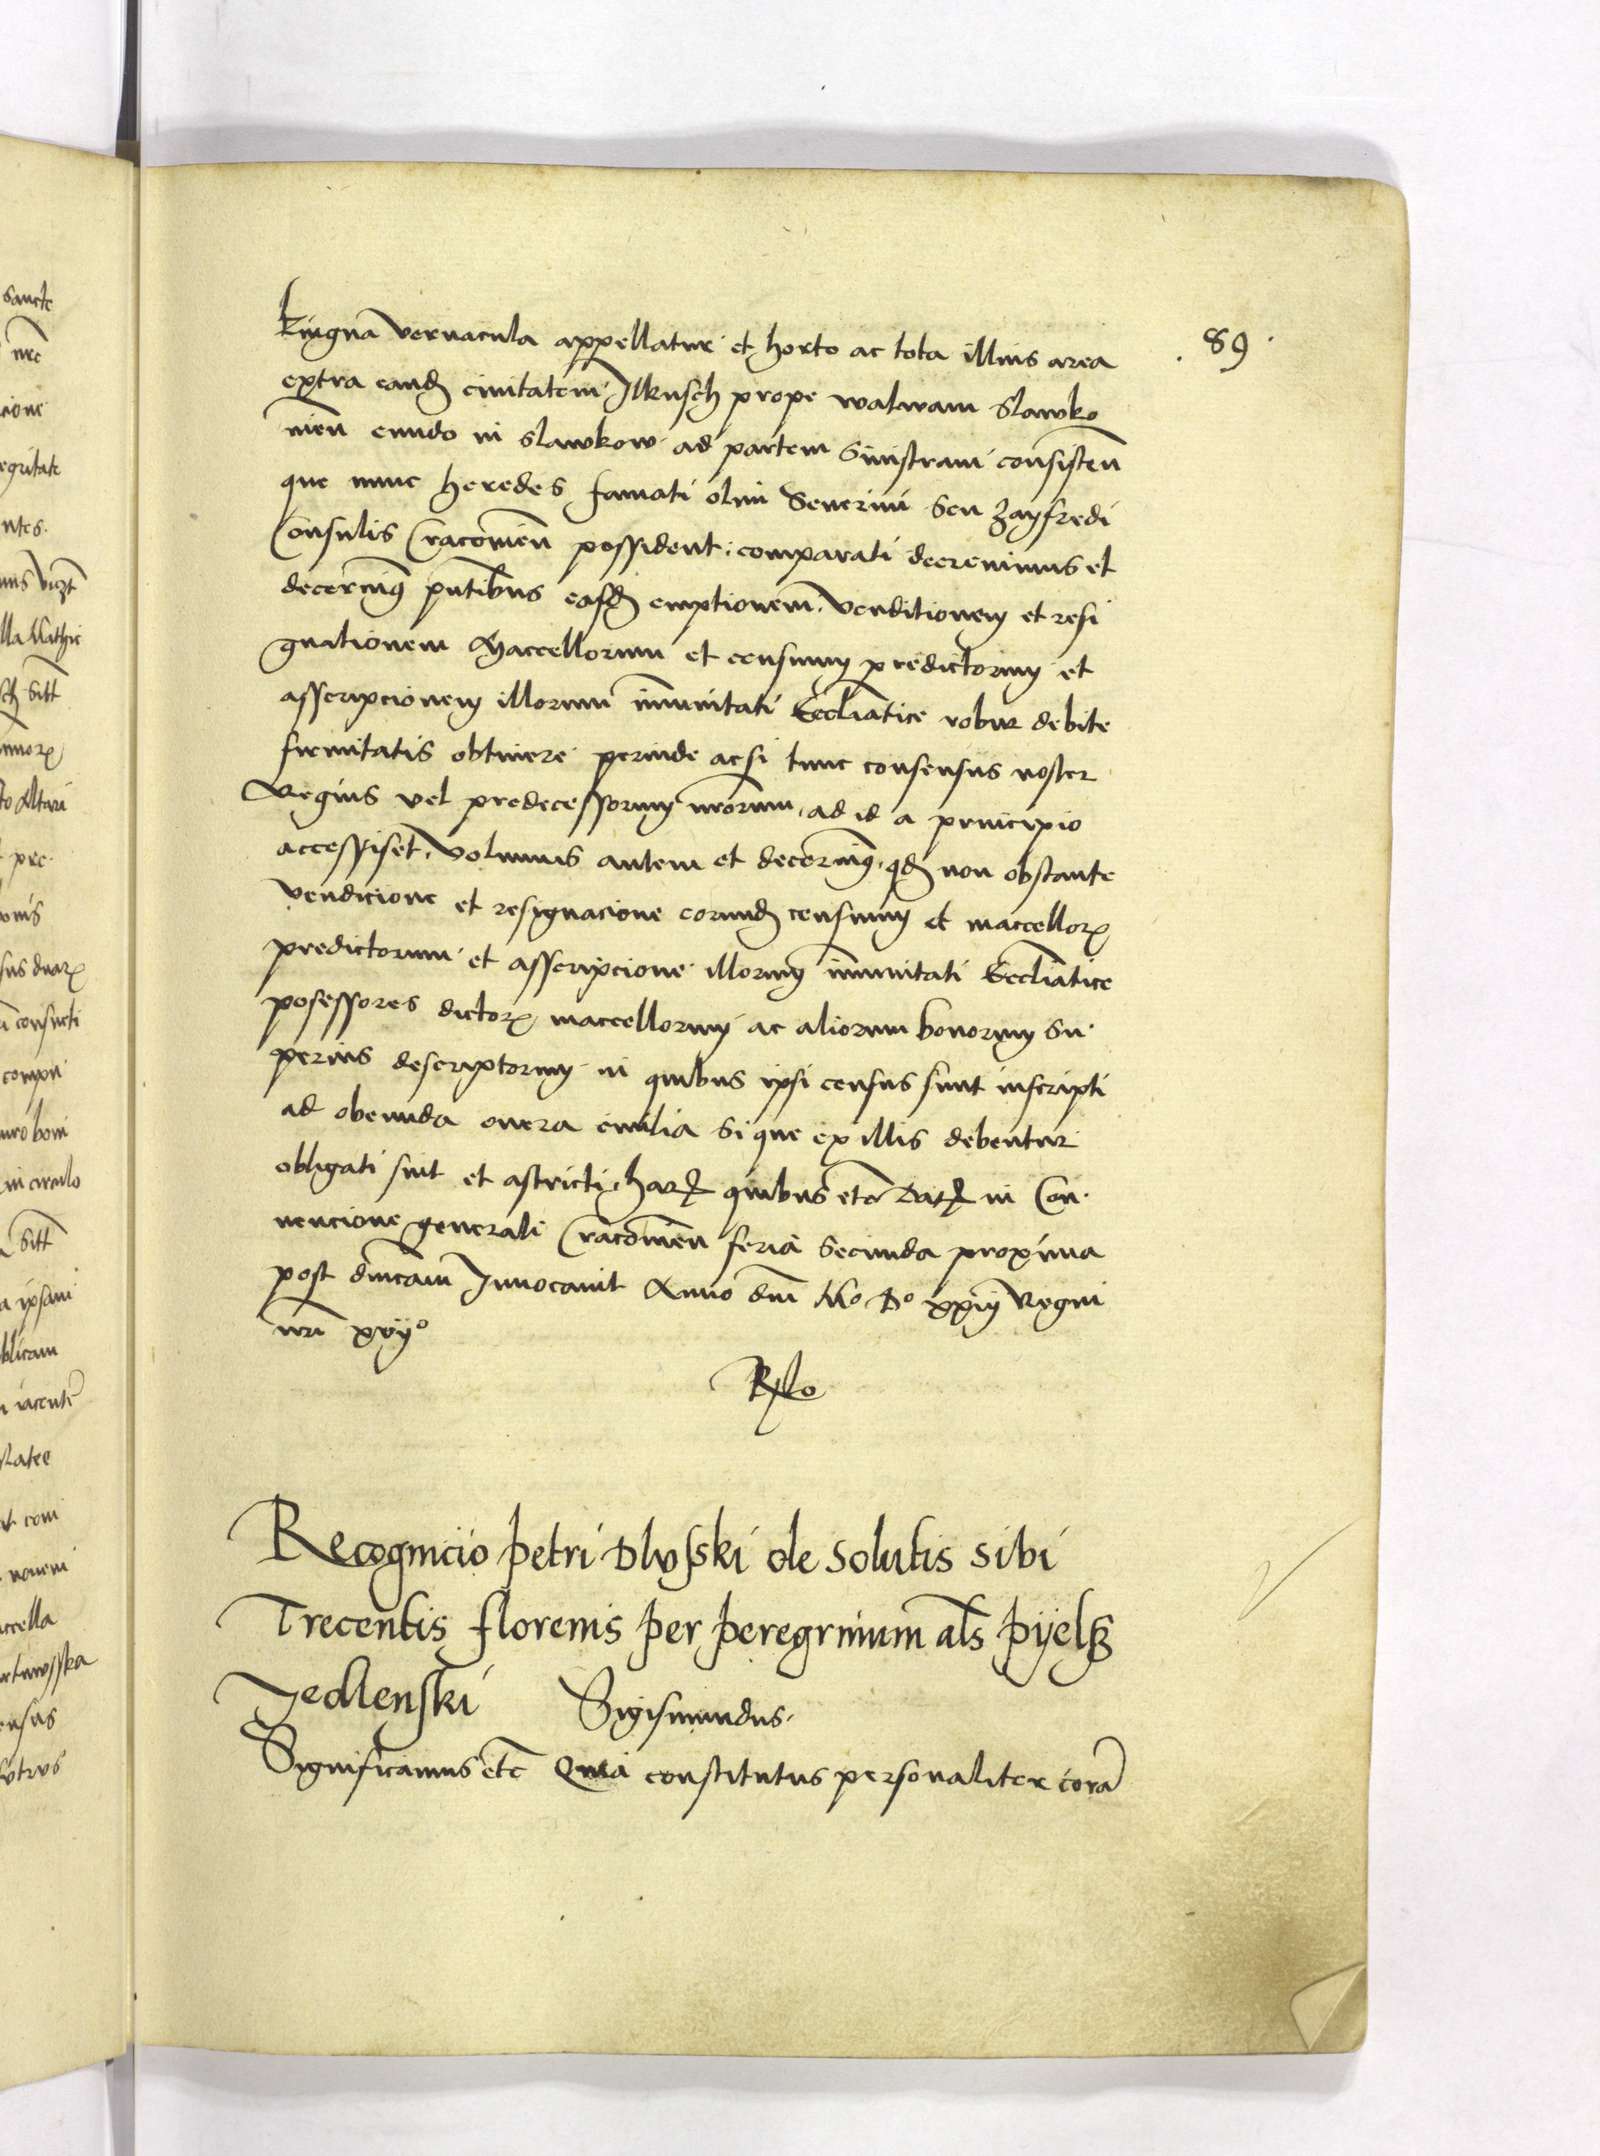 89
Lingua vernacula appellatur et horto ac tota illius area
extra eand civitatem Ilkusch prope walwam Slawko
vien eundo in Slawkow ad partem Sinistram consisten
que nunc heredes famati olim Severini Seu Zayfredi
Consulis Cracovien possident comparati decrevimus et
decernimꝰ pntibus easd emptionem venditionem et resi
gnationem Maccellorum et censuum predictorum et
asscripcionem illorum immunitati Ecclīatice robur debite
firmitatis obtinere perinde acsi tunc consensus noster
Regius vel predecessorum nrorum ad id a principio
accessisset Volumus autem et decernimꝰ qd non obstante
vendicione et resignacione eorund censuum et maccelloꝝ
predictorum et asscripcione illorum immunitati Ecclīatice
possessores dictoꝝ maccellorum ac aliorum bonorum Su
perius descriptorum in quibus ipsi census sunt inscripti
ad obeunda onera civilia Si que ex illis debentur
obligati sint et astricti haꝝ quibus etc Datꝭ in Con
vencione generali Cracovien feria Secunda proxima
post dnicam Invocavit Anno dni Mo Do xxiij Regni
nri xvijo
Recognicio petri Dlvsski de Solutis sibi
Trecentis florenis per peregrinum als pyelg
Jedlenski Sigismundus
Significamus etc Quia constitutus personaliter corā
sancte
nre
cione
egritate
ntes
sch Sitt
to Altari
pre
sus duaꝝ
consueti
in circulo
Sitt
ipsam
blicam
iacenti
platee
novem
ccella
ensus